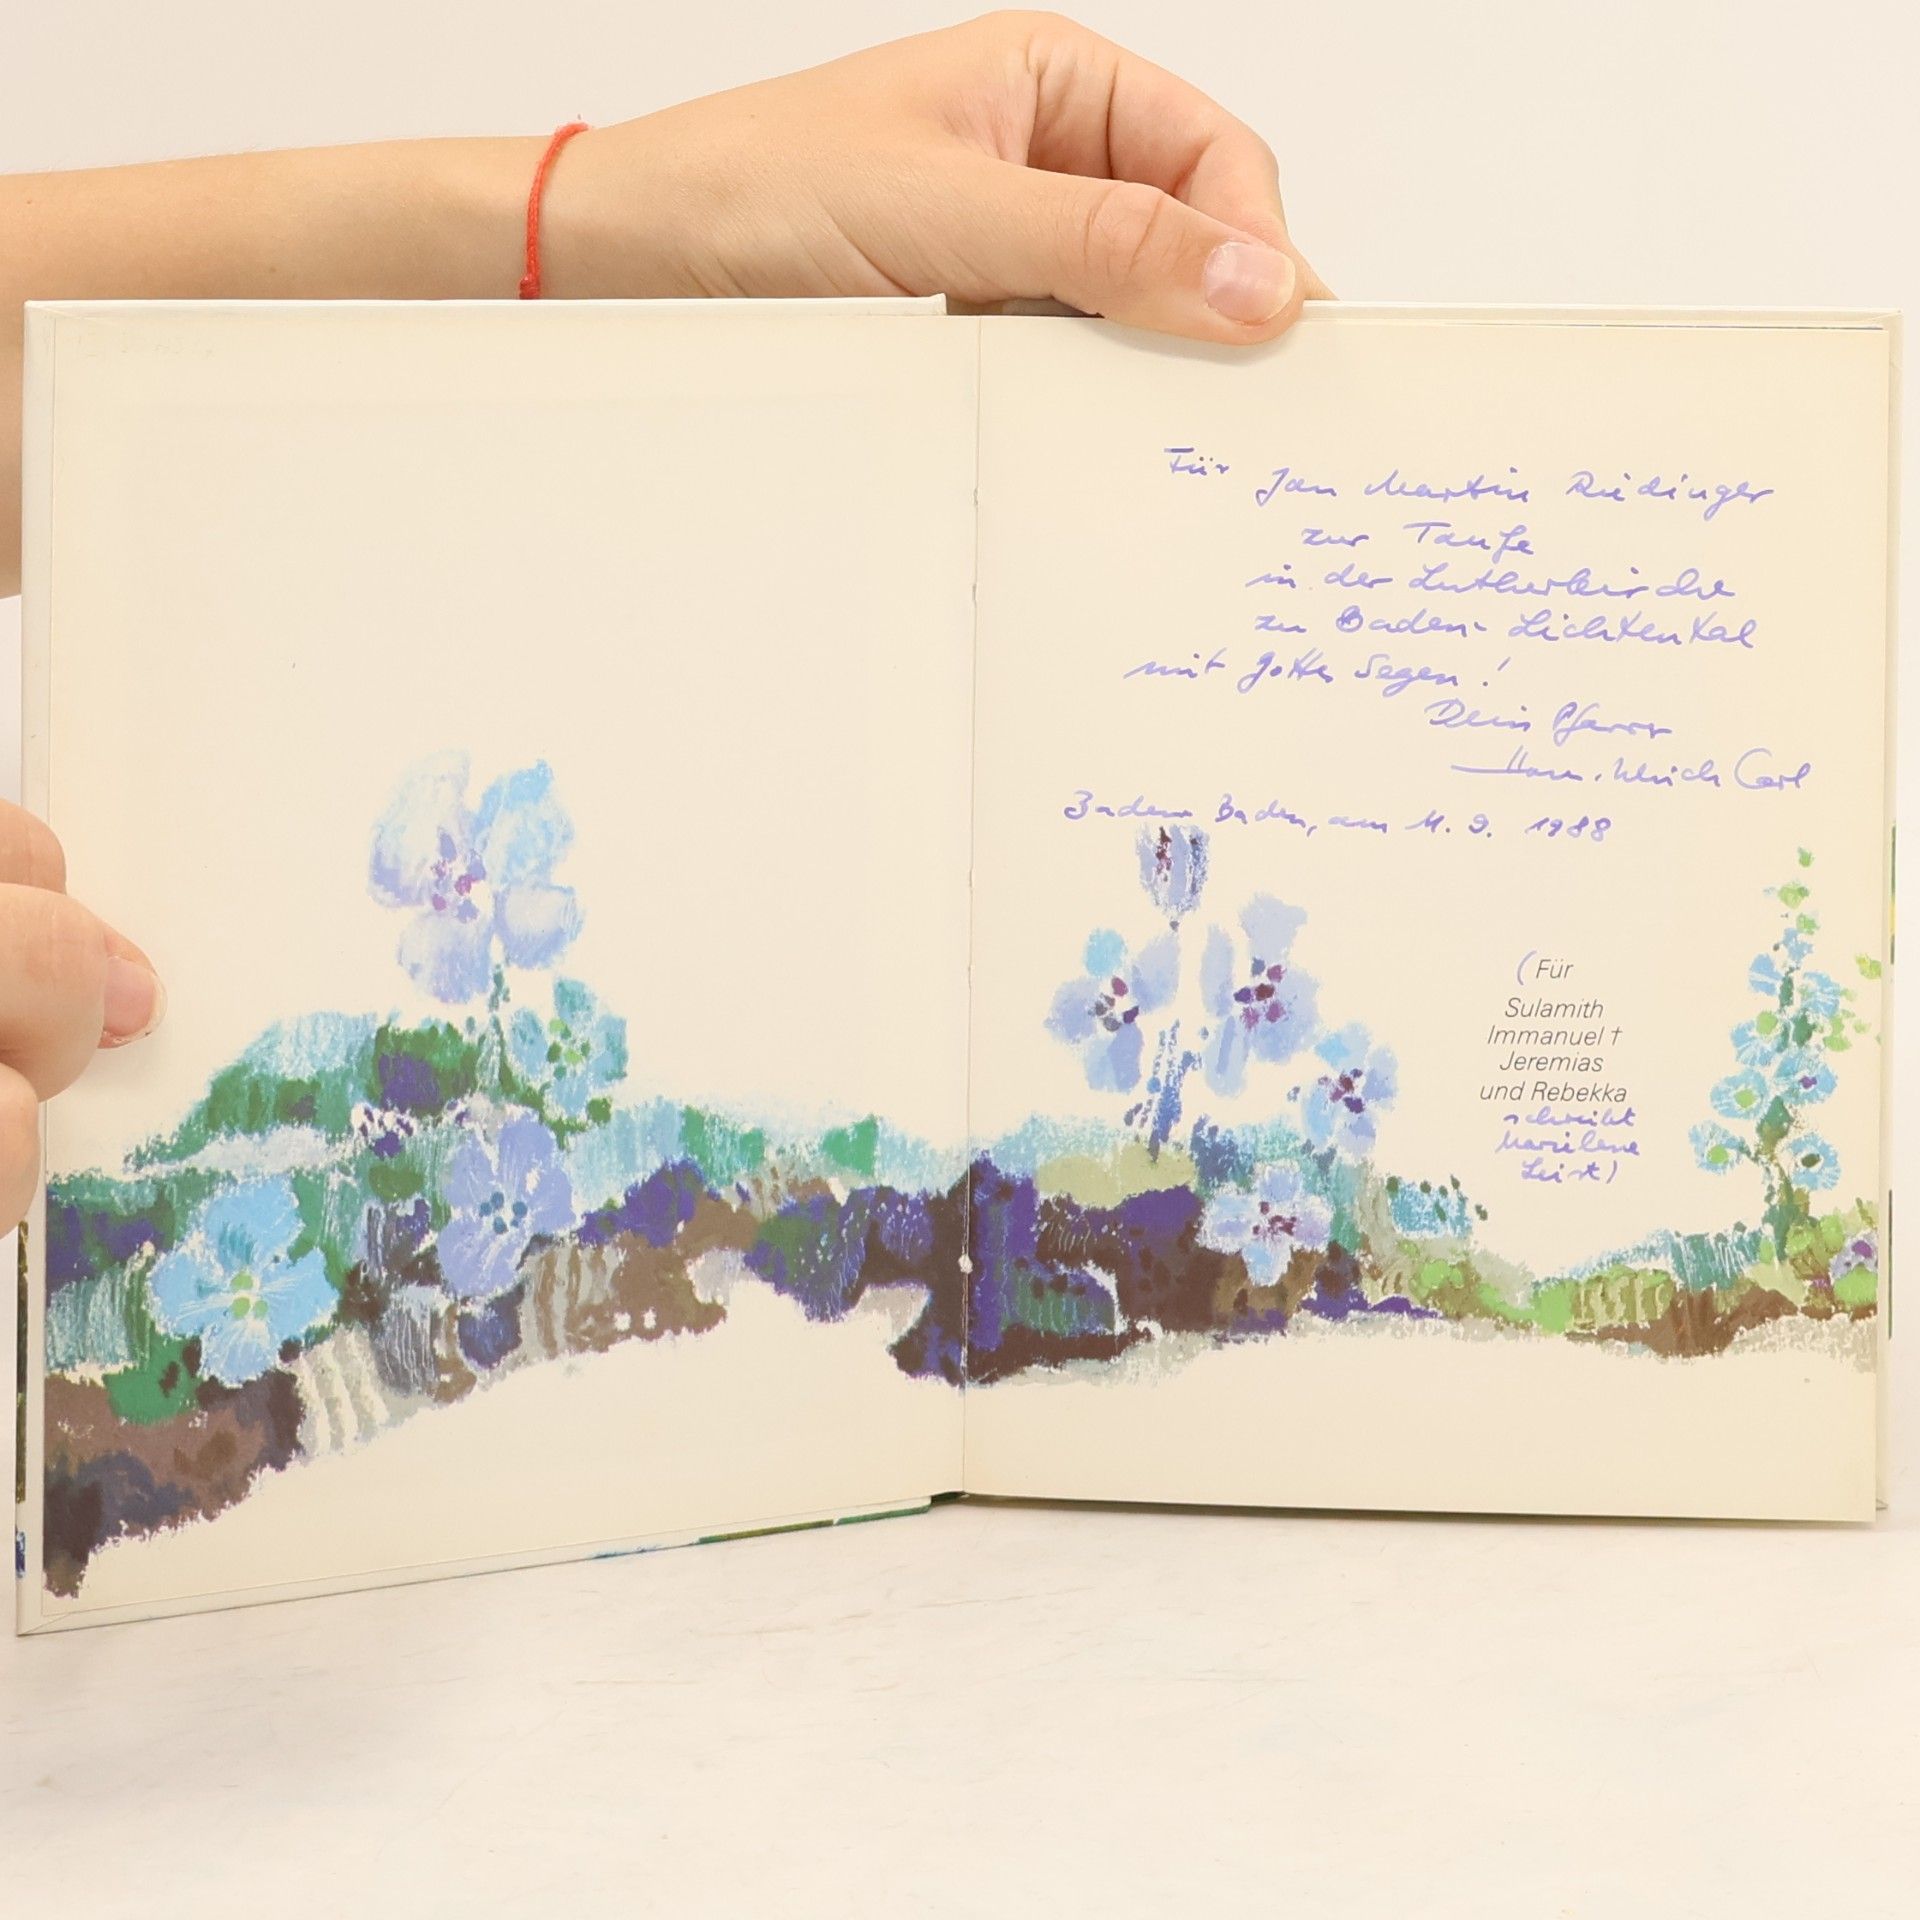 Für
Jan Martin Riedinger
zur Taufe
in der Lutherkirche
zu Baden-Lichtental
mit Gottes Segen!
Dein Pfarrer
Hans-Ulrich Carl
Baden-Baden, am 11. 9. 1988
(Für
Sulamith
Immanuel †
Jeremias
und Rebekka
schreibt
Marilene
Leist)